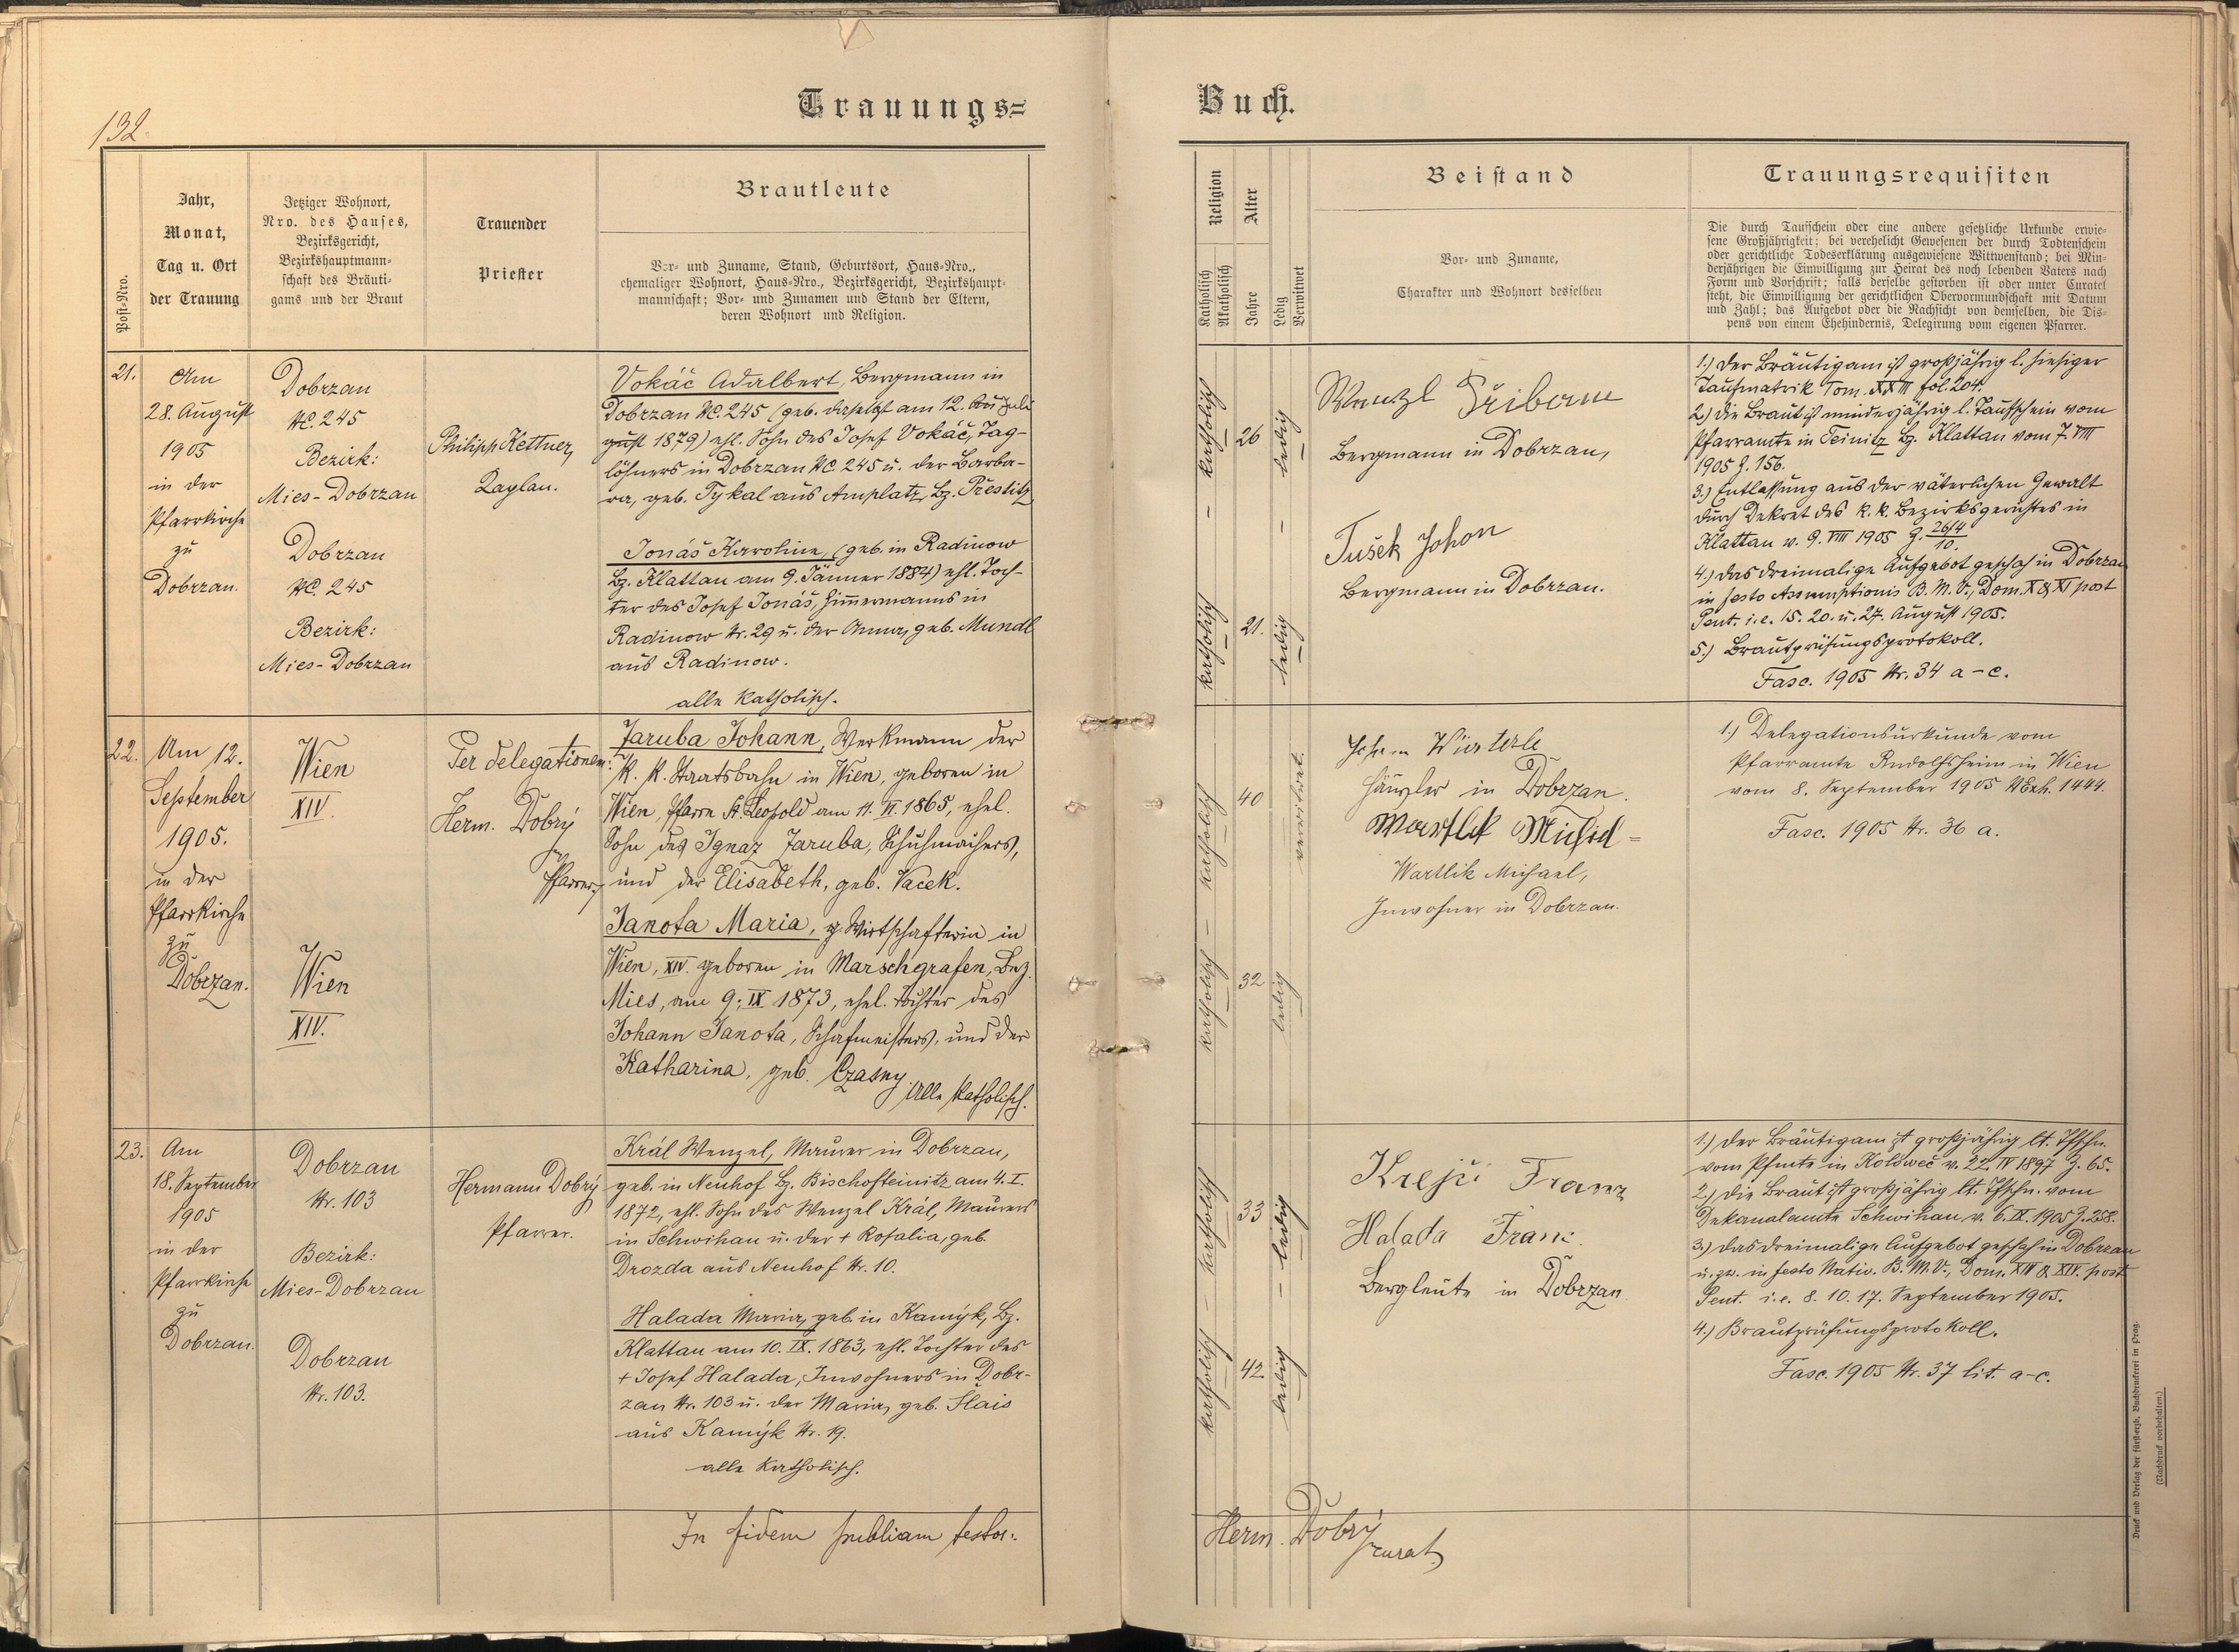 132.
Trauungs=
Post-Nro.
Jahr,
Monat,
Tag u. Ort
der Trauung
Jetziger Wohnort,
Nro. des Hauses,
Bezirksgericht,
Bezirkshauptmann-
schaft des Bräuti-
gams und der Braut
Trauender
Priester
Brautleute
Vor- und Zuname, Stand, Geburtsort, Haus-Nro.,
ehemaliger Wohnort, Haus-Nro., Bezirksgericht, Bezirkshaupt-
mannschaft; Vor- und Zunamen und Stand der Eltern,
deren Wohnort und Religion.
21.
Am
28. August
1905
in der
Pfarrkirche
zu
Dobrzan.
Dobrzan
NC. 245
Bezirk:
Mies-Dobrzan
Dobrzan
NC. 245
Bezirk:
Mies-Dobrzan
Philipp Kettner,
Kaplan.
Vokáč Adalbert, Bergmann in
Dobrzan NC. 245 (geb. daselbst am 12. Au Juli
gust 1879) ehl. Sohn des Josef Vokáč, Tag-
löhners in Dobrzan NC. 245 u. der Barba-
ra, geb. Tykal aus Amplatz, Bz. Přestitz
Jonáš Karoline, (geb. in Radinow
Bz. Klattau am 9. Jänner 1884) ehl. Toch-
ter des Josef Jonáš, Zimmermanns in
Radinow Nr. 29 u. der Anna, geb. Mundl
aus Radinow.
alle katholisch.
22.
Am 12.
September
1905.
in der
Pfarrkirche
zu
Dobrzan.
Wien
XIV.
Wien
XIV.
Per delegationem:
Herm. Dobrý
Pfarrer
Jaruba Johann, Werkmann der
k. k. Staatsbahn in Wien, geboren in
Wien, Pfarre St. Leopold am 11. VI. 1865, ehel.
Sohn des Ignaz Jaruba, Schuhmachers,
und der Elisabeth, geb. Vacek.
Janota Maria, Wirtschafterin in
Wien, XIV. geboren in Marschgrafen, Bez.
Mies, am 9. IX 1873, ehel. Tochter des
Johann Janota, Schafmeisters, und der
Katharina, geb. Czasny. Alle katholisch.
23.
Am
18. September
1905
in der
Pfarrkirche
zu
Dobrzan.
Dobrzan
Nr. 103
Bezirk:
Mies-Dobrzan
Dobrzan
Nr. 103.
Hermann Dobrý
Pfarrer.
Král Wenzel, Maurer in Dobrzan,
geb. in Neuhof Bz. Bischofteinitz am 4. I.
1872, ehl. Sohn des Wenzel Král, Maurers
in Schwihau u. der + Rosalia, geb.
Drozda aus Neuhof Nr. 10.
Halada Maria, geb. in Kamýk, Bz.
Klattau am 10. IX. 1863, ehl. Tochter des
+ Josef Halada, Inwohners in Dobr-
zan Nr. 103 u. der Maria, geb. Slais
aus Kamýk Nr. 19.
alle katholisch.
In fidem publicam testor:
Buch.
Religion
Katholisch
Akatholisch
Alter
Jahre
Ledig
Verwitwet
Beistand
Vor- und Zuname,
Charakter und Wohnort desselben
Trauungsrequisiten
Die durch Taufschein oder eine andere gesetzliche Urkunde erwie-
sene Großjährigkeit; bei verehelicht Gewesenen der durch Todtenschein
oder gerichtliche Todeserklärung ausgewiesene Wittwenstand; bei Min-
derjährigen die Einwilligung zur Heirat des noch lebenden Vaters nach
Form und Vorschrift; falls derselbe gestorben ist oder unter Curatel
steht, die Einwilligung der gerichtlichen Obervormundschaft mit Datum
und Zahl; das Aufgebot oder die Nachsicht von demselben, die Dis-
pens von einem Ehehindernis, Delegirung vom eigenen Pfarrer.
katholisch
26
ledig
katholisch
21.
ledig
Wenzl Přibane
Bergmann in Dobrzan,
Tušek Johan
Bergmann in Dobrzan.
1.) Der Bräutigam ist großjährig l. hiesiger
Taufmatrik Tom. XXIII fol. 204.
2.) Die Braut ist minderjährig l. Taufschein vom
Pfarramte in Teinitz Bz. Klattau vom 7. VIII
1905 Z. 156.
3.) Entlassung aus der väterlichen Gewalt
durch Dekret des k. k. Bezirksgerichtes in
Klattau v. 9. VIII 1905 Z. 26/4
10.
4.) Das dreimalige Aufgebot geschah in Dobrzan
in festo Assumptionis B. M. V., Dom. X & XI post
Pent. i. e. 15. 20. u. 27. August 1905.
5.) Brautprüfungsprotokoll.
Fasc. 1905 Nr. 34 a-c.
katholisch
40
verwitwet.
katholisch
32
ledig
Häusler in Dobrzan.
Wartlik Michael,
Inwohner in Dobrzan.
1.) Delegationsurkunde vom
Pfarramte Rudolfsheim in Wien
vom 8. September 1905 NExh. 1444.
Fasc. 1905 Nr. 36 a.
katholisch
33
ledig
katholisch
42.
ledig
Krejčí Franz
Halada Franz.
Bergleute in Dobrzan
1.) Der Bräutigam ist großjährig lt. Tfschn.
vom Pfmte in Kolowetsch v. 22. IV 1897 Z. 65.
2.) Die Braut ist großjährig lt. Tfschn. vom
Dekanalamte Schwihau v. 6. IX. 1905 Z. 258.
3.) Das dreimalige Aufgebot geschah in Dobrzan
u. zw. in festo Nativ. B. M. V., Dom. XIII & XIV. post
Pent. i. e. 8. 10. 17. September 1905.
4.) Brautprüfungsprotokoll.
Fasc. 1905 Nr. 37 lit. a-c.
Herm. Dobrý
curat
Druck und Verlag der fürsterzb. Buchdruckerei in Prag.
(Nachdruck vorbehalten.)